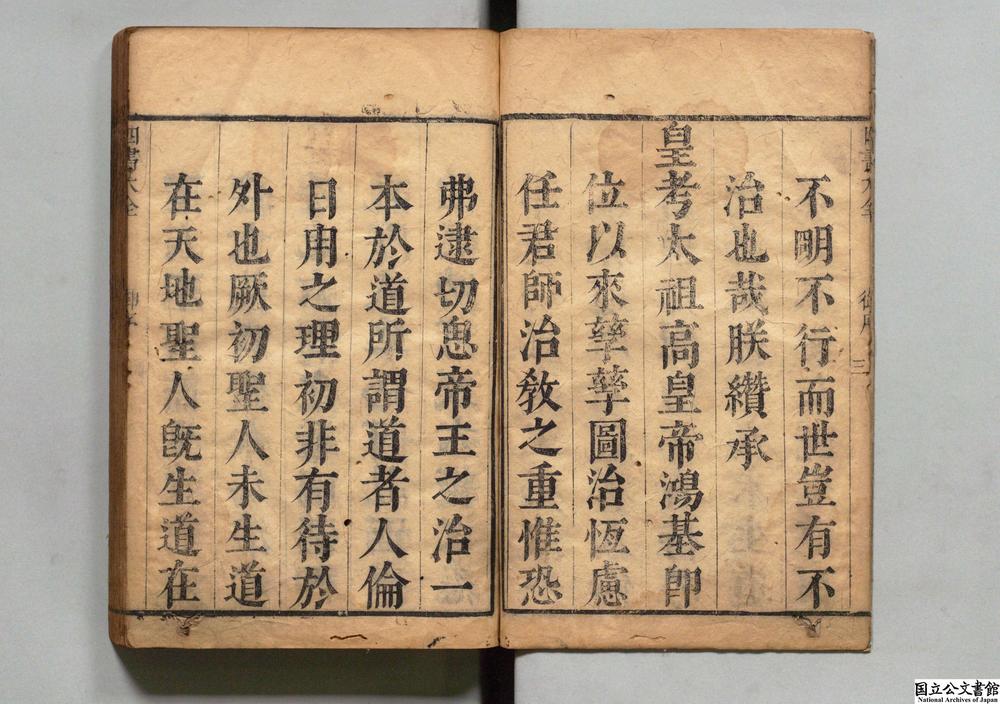 不明不行而世豈有不
治也哉朕纘承
皇考太祖高皇帝鴻基即
位以來孳孳圖治恆慮
任君師治教之重惟恐
弗逮切思帝王之治一
本於道所謂道者人倫
日用之理初非有待於
外也厥初聖人未生道
在天地聖人旣生道在
四書大全
国立公文書館
National Archives of Japan